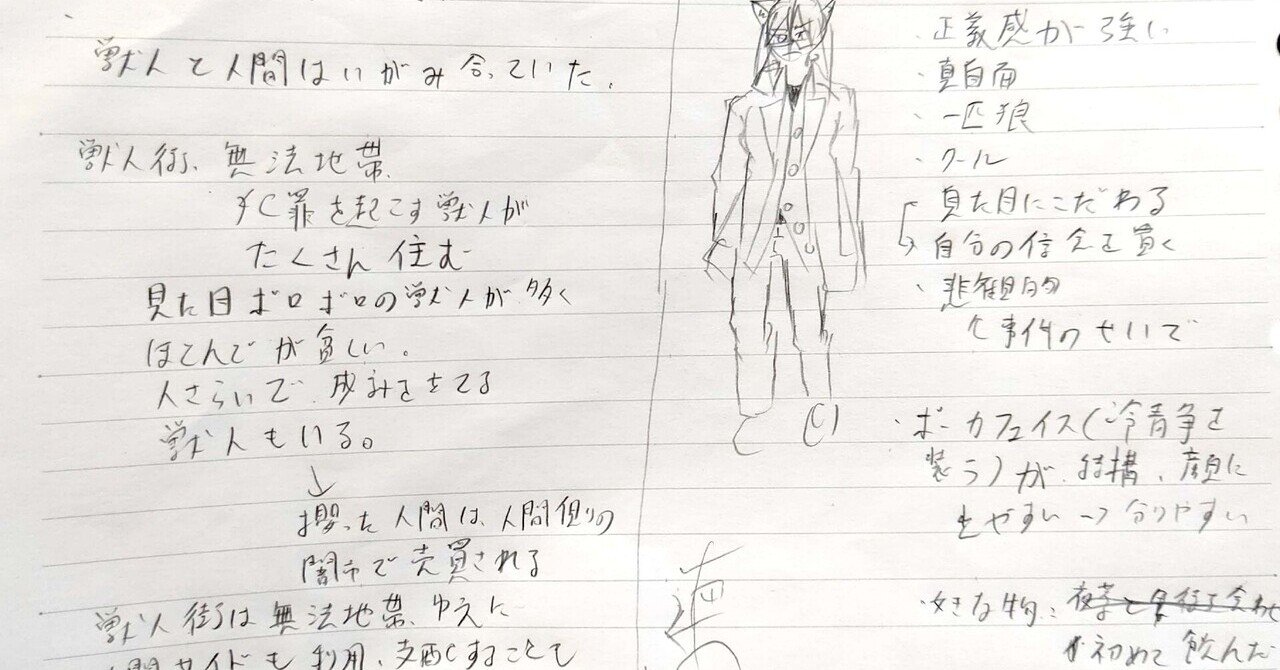 獣人と人間はいがみ合っていた。
獣人街、無法地帯
犯罪を起こす獣人が
たくさん住む
見た目ボロボロの獣人が多く
ほとんどが貧しい。
人さらいで成り立ってる
獣人もいる。
↓
攫った人間は、人間側の
闇市で売買される
獣人街は無法地帯、ゆえに
人間サイドも利用、支配することも
・正義感が強い
・真面目
・一匹狼
・クール
・見た目にこだわる
→自分の信念を貫く
・悲観的
事件のせいで
・ポーカフェイス(冷静を
装う)が、結構、顔に
でやすい→分りやすい
・好きな物:
初めて飲んだ